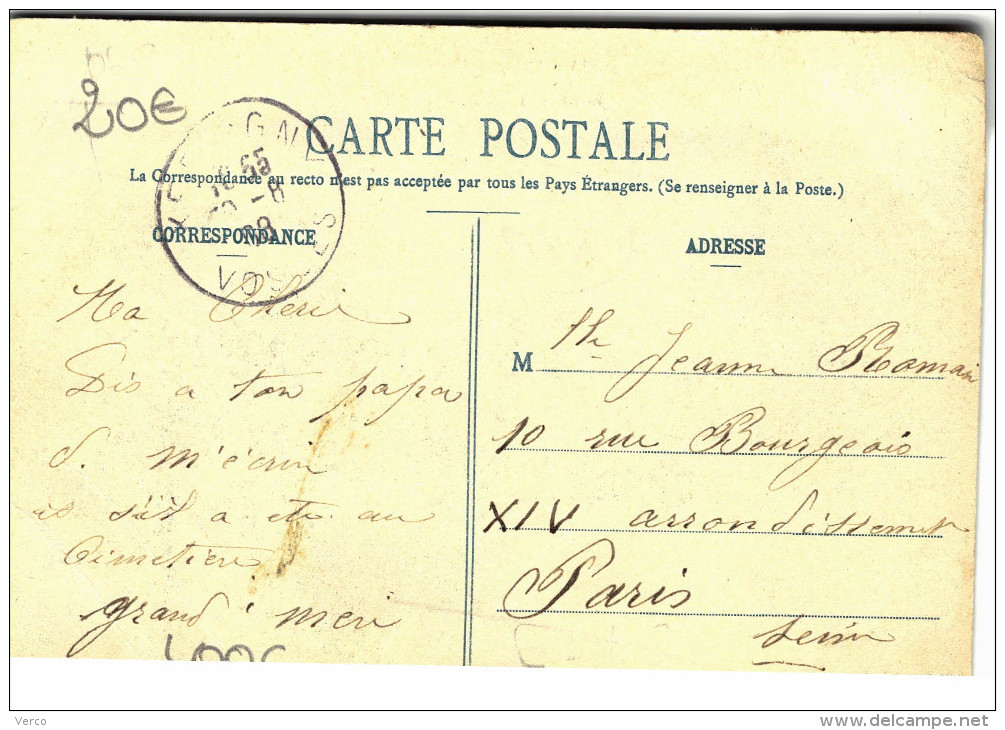 20€
CARTE POSTALE
La Correspondance au recto n'est pas acceptée par tous les Pays Étrangers. (Se renseigner à la Poste.)
18 55
-8
09
CORRESPONDANCE
Ma Cherie
Dis a ton papa
d. m'écrire
et s'il a ete au
Cimetiere
grand' mere
ADRESSE
M lle Jeanne Romain
10 rue Bourgeois
XIV arrondissement
Paris
Seine
Verco
www.delcampe.net